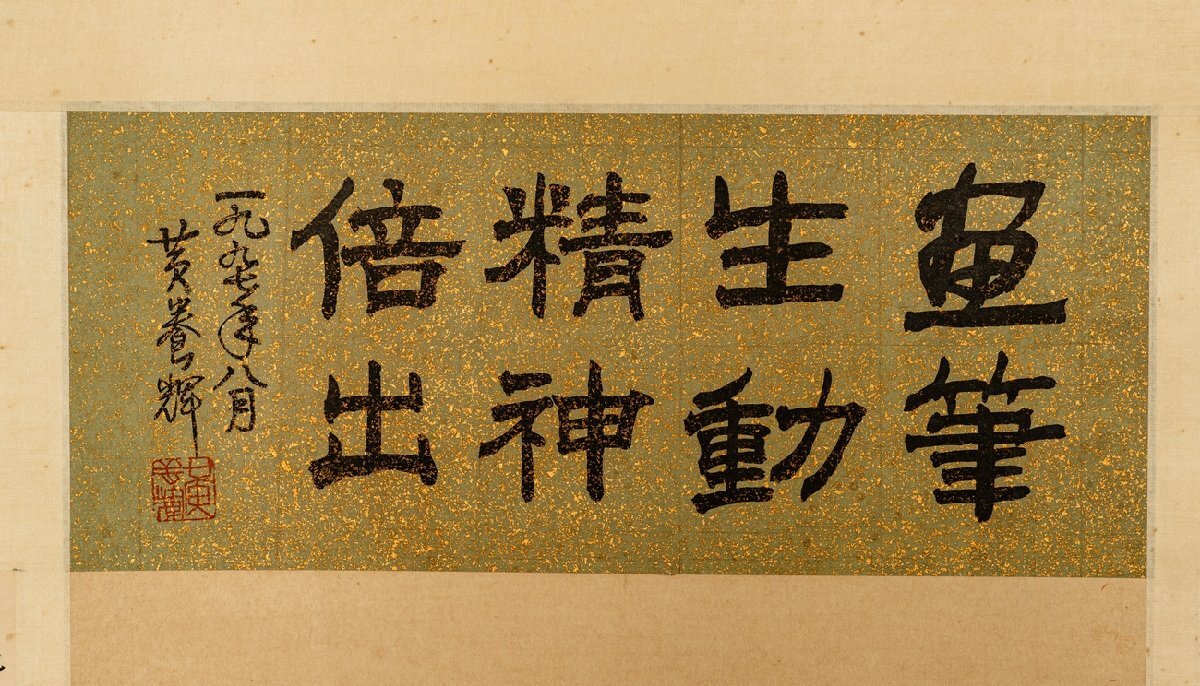 畫筆
生動
精神
倍出
一九九七年八月
黄養輝